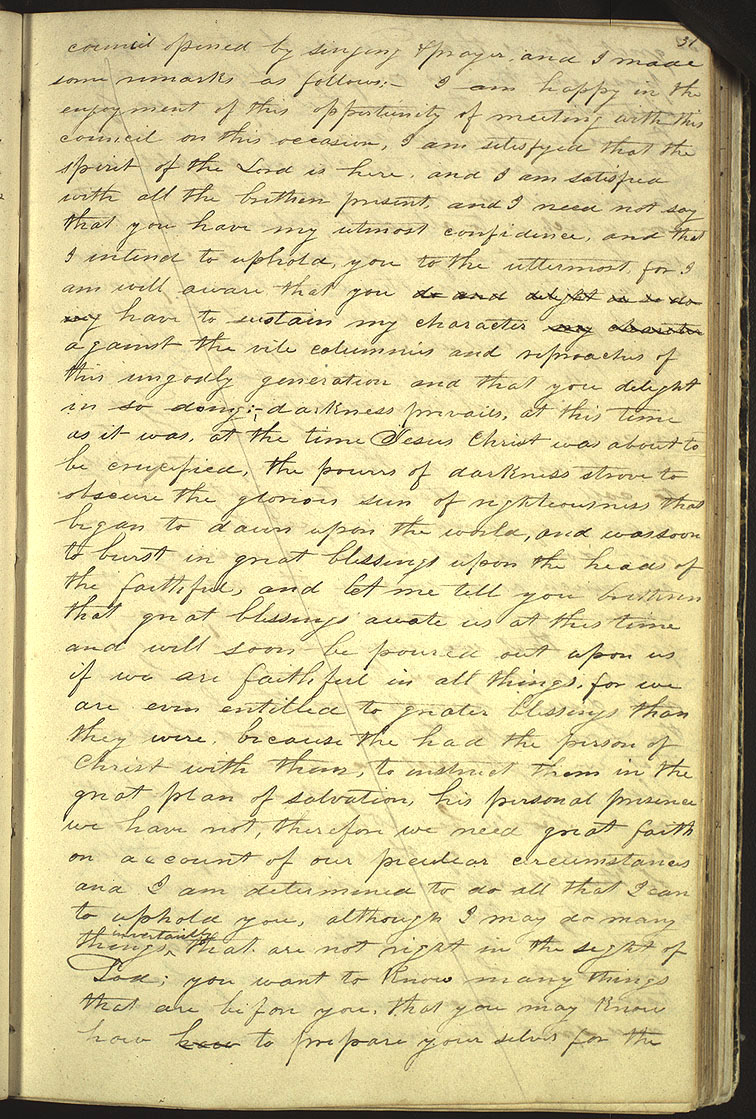 31
council opened by singing & prayer. and I made
some remarks as follows:— I am happy in the
enjoyment of this opportunity of meeting with this
council on this occasion, I am satisfyed that the
spirit of the Lord is here. and I am satisfied
with all the brethren present, and I need not say
that you have my utmost confidence, and that
I intend to uphold, you to the uttermost, for I
am well aware that you do and delight in so do
ing have to sustain my character my character
against the vile calumnies and reproaches of
this ungodly generation and that you delight
in so doing:— darkness prevails, at this time
as it was, at the time Jesus Christ was about to
be crucified, the powers of darkness strove to
obscure the glorious sun of righteousness that
began to dawn upon the world, and was soon
to burst in great blessings upon the heads of
the faithful, and let me tell you brethren
that great blessings awate us at this time
and will soon be poured out upon us
if we are faithful in all things, for we
are even entitled to greater blessings than
they were, because the had the person of
Christ with them, to instruct them in the
great plan of salvation, his personal presence
we have not, therefore we need great faith
on account of our peculiar circumstances
and I am determined to do all that I can
to uphold you, although I may do many
things, invertaintly that are not right in the sight of
God; you want to know many things
that are before you, that you may know
how how to prepare your selves for the